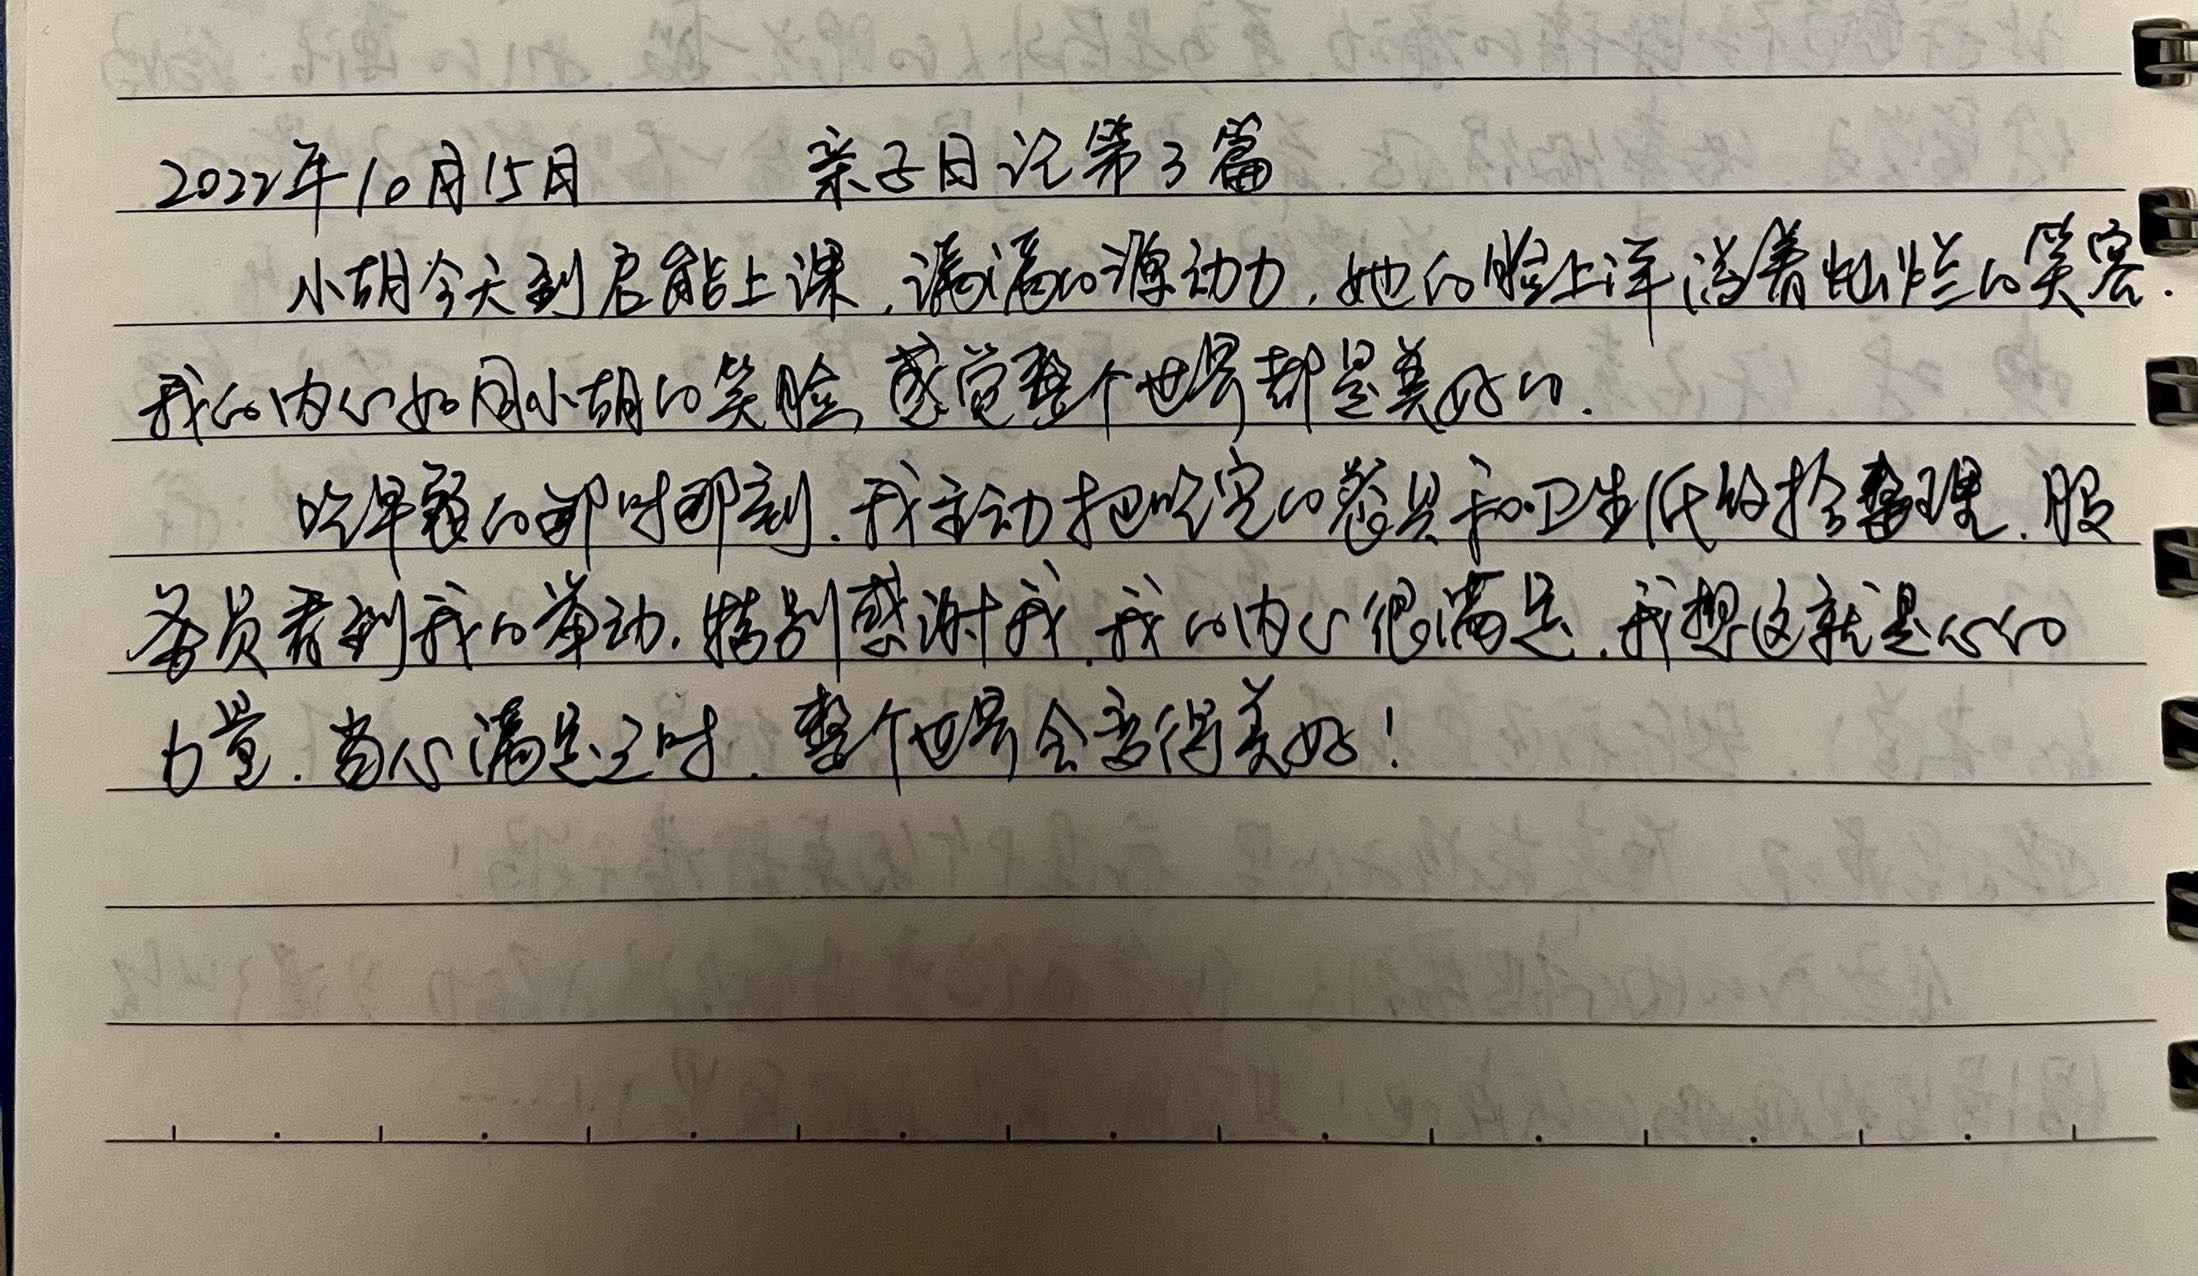 2022年10月15日 亲子日记第3篇
小胡今天到启能上课,满满的源动力,她的脸上洋溢着灿烂的笑容.
我的内心如同小胡的笑脸,感觉整个世界都是美好的.
吃早餐的那时那刻.我主动把吃完的餐具和卫生纸收拾整理.服
务员看到我的举动.特别感谢我.我的内心很满足.我想这就是心的
力量.当心满足之时.整个世界会变得美好!